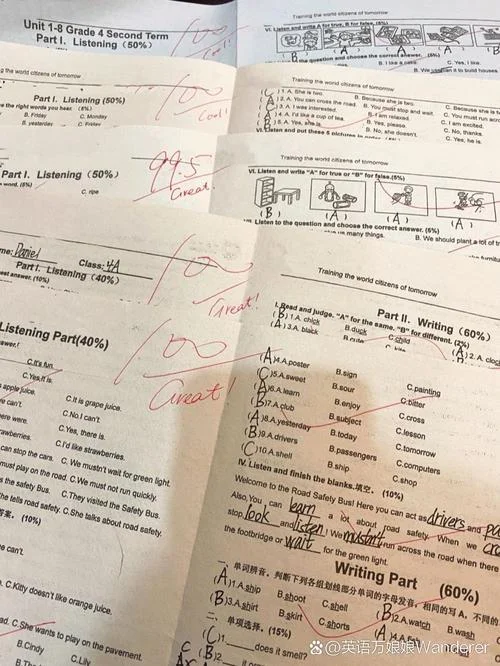 Unit 1-8 Grade 4 Second Term
Part I. Listening (50%)
100
Cool!
Training the world citizens of tomorrow
VI. Listen and write A for true, B for false. (5%)
(B)
(A)
(A)
the question and choose the correct answer. (5%)
B. I like a cake.
C. Yes, I like.
B. We use
Training the world citizens of tomorrow
(C) 1. A. She is two.
B. Because she is two.
(A) 2. A. You can cross the road.
B. You must stop and wait.
(C) 3. A. I was interested.
B. I am relaxed.
C. I am excited.
(A) 4. A. I'd like a cup of tea.
B. Yes, please.
C. No, thanks.
(B) 5. A. Yes, she is.
B. No, she doesn't.
C. Yes, he is.
VI. Listen and put these 5 pictures in
ng the world citizens of tomorrow
Part I. Listening (50%)
e the right words you hear.
B. Friday
C. Monday
B. yesterday
C. Friday
100
Cool!
Part I. Listening (50%)
word. (5%)
C. ripe
99.5
Great!
Training the world citizens of tomorrow
VI. Listen and write "A" for true or "B" for false. (5%)
(B)
(A)
(A)
(A)
VII. Listen to the question and choose the correct answer. (6%)
many things.
B. We should plant a lot of
me: Daniel
Class: 4A
Part I. Listening (40%)
est answer. (10%)
100
Great!
Listening Part(40%)
swer.(
C.It's fun.
C.Yes,it is.
apple juice.
C.It is grape juice.
e can't.
C.No.I can't
ere were.
C. Yes, there is.
rawberries.
C.I'd like strawberries.
can stop the cars.
C. We mustn't wait for green light.
must play on the road.
C. We must not run quickly.
s the safety Bus.
C. They visited the Safety Bus.
he tells road safety.
C. She talks about road safety.
(10%)
he can't.
C.Kitty doesn't like orange juice.
ad.
C.She wants to play on the pavement.
B.Cindy
C.Lily
100
Great!
Training the world citizens of tomorrow
Part II. Writing (60%)
I. Read and judge. "A" for the same. "B" for different. (2%)
(B) 1.A. chick
B.duck
C.child
(A) 2.A. clo
(A) 3.A. black
B.cute
(A)4.A.poster
B.sign
C.painting
(C)5.A.sweet
B.sour
C.bitter
(A)6.A.learn
B.enjoy
C.cross
(B)7.A.club
B.subject
C.lesson
(A)8.A.yesterday
B.today
C.tomorrow
(B)9.A.drivers
B.passengers
C.computers
(C)10.A.shell
B.ship
C.shop
IV. Listen and finish the blanks.填空。 (10%)
Welcome to the Road Safety Bus! Here you can act as drivers and
Also,You can learn a lot about road safety. When we
stop look and listen! We mustn't run across the road when there
the footbridge or wait for the green light.
Writing Part (60%)
一、单词拼音。判断下列各组划线部分单词的字母发音，相同的写 A，不同的
(A)1.A.ship
B.shoot
C.shell
(B)2.A.watch
B.wash
(B)3.A.shirt
B.skirt
C.shorts
二、单项选择。(15%)
(C)1.
does it smell?
@英语万娘娘Wanderer